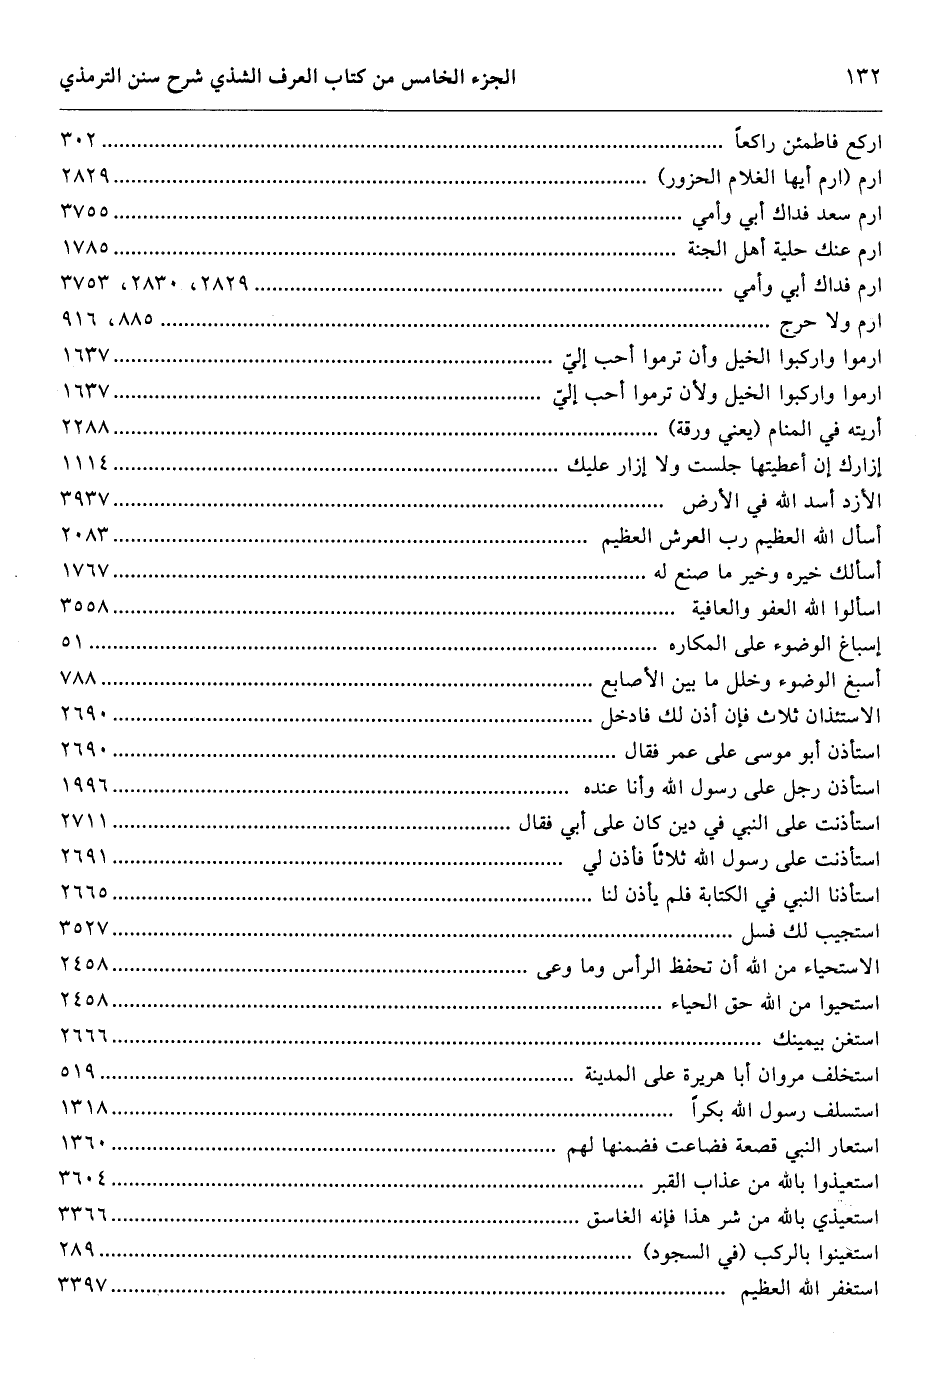 ١٣٢ الجزء الخامس من كتاب العرف الشذي شرح سنن الترمذي
اركع فاطمئن راكعاً ........ ٣٠٢
ارم (ارم أيها الغلام الحزور) ........ ٢٨٢٩
ارم سعد فداك أبي وأمي ........ ٣٧٥٥
ارم عنك حلية أهل الجنة ........ ١٧٨٥
ارم فداك أبي وأمي ........ ٢٨٢٩، ٢٨٣٠، ٣٧٥٣
ارم ولا حرج ........ ٨٨٥، ٩١٦
ارموا واركبوا الخيل وأن ترموا أحب إليّ ........ ١٦٣٧
ارموا واركبوا الخيل ولأن ترموا أحب إليّ ........ ١٦٣٧
أريته في المنام (يعني ورقة) ........ ٢٢٨٨
إزارك إن أعطيتها جلست ولا إزار عليك ........ ١١١٤
الأزد أسد الله في الأرض ........ ٣٩٣٧
أسأل الله العظيم رب العرش العظيم ........ ٢٠٨٣
أسألك خيره وخير ما صنع له ........ ١٧٦٧
اسألوا الله العفو والعافية ........ ٣٥٥٨
إسباغ الوضوء على المكاره ........ ٥١
أسبغ الوضوء وخلل ما بين الأصابع ........ ٧٨٨
الاستئذان ثلاث فإن أذن لك فادخل ........ ٢٦٩٠
استأذن أبو موسى على عمر فقال ........ ٢٦٩٠
استأذن رجل على رسول الله وأنا عنده ........ ١٩٩٦
استأذنت على النبي في دين كان على أبي فقال ........ ٢٧١١
استأذنت على رسول الله ثلاثاً فأذن لي ........ ٢٦٩١
استأذنا النبي في الكتابة فلم يأذن لنا ........ ٢٦٦٥
استجيب لك فسل ........ ٣٥٢٧
الاستحياء من الله أن تحفظ الرأس وما وعى ........ ٢٤٥٨
استحيوا من الله حق الحياء ........ ٢٤٥٨
استغن بيمينك ........ ٢٦٦٦
استخلف مروان أبا هريرة على المدينة ........ ٥١٩
استسلف رسول الله بكراً ........ ١٣١٨
استعار النبي قصعة فضاعت فضمنها لهم ........ ١٣٦٠
استعيذوا بالله من عذاب القبر ........ ٣٦٠٤
استعيذي بالله من شر هذا فإنه الغاسق ........ ٣٣٦٦
استعينوا بالركب (في السجود) ........ ٢٨٩
استغفر الله العظيم ........ ٣٣٩٧